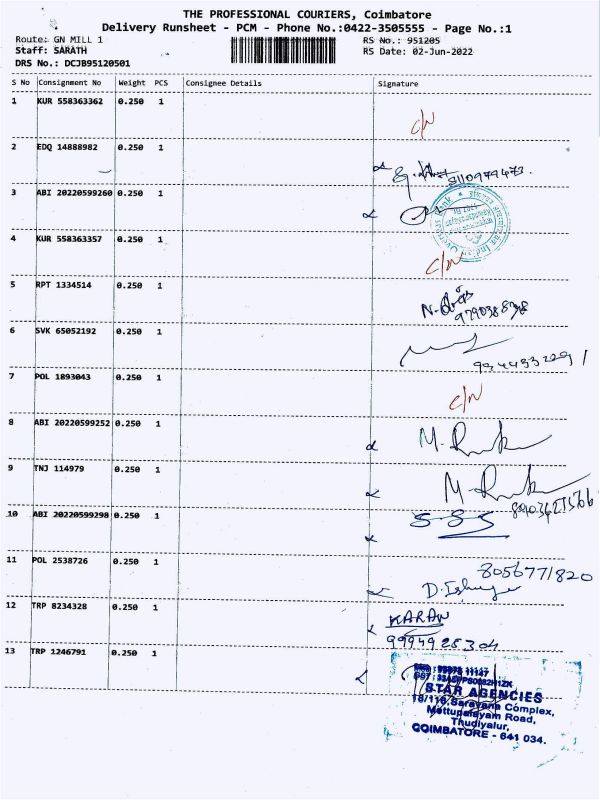 THE PROFESSIONAL COURIERS, Coimbatore
Delivery Runsheet - PCM - Phone No.:0422-3505555 - Page No.:1
Route: GN MILL 1
RS No.: 951205
Staff: SARATH
RS Date: 02-Jun-2022
DRS No.: DCJB95120501
S No Consignment No Weight PCS Consignee Details Signature
1 KUR 558363362 0.250 1
C/N
2 EDQ 14888982 0.250 1
8110979473.
3 ABI 20220599260 0.250 1
4 KUR 558363357 0.250 1
C/N
5 RPT 1334514 0.250 1
9790388738
6 SVK 65052192 0.250 1
7 POL 1893043 0.250 1
C/N
8 ABI 20220599252 0.250 1
9 TNJ 114979 0.250 1
10 ABI 20220599298 0.250 1
SSS
11 POL 2538726 0.250 1
8056771820
12 TRP 8234328 0.250 1
KARAN
13 TRP 1246791 0.250 1
STAR AGENCIES
Saravana Complex,
Mettupalayam Road,
Thudiyalur,
COIMBATORE - 641 034.